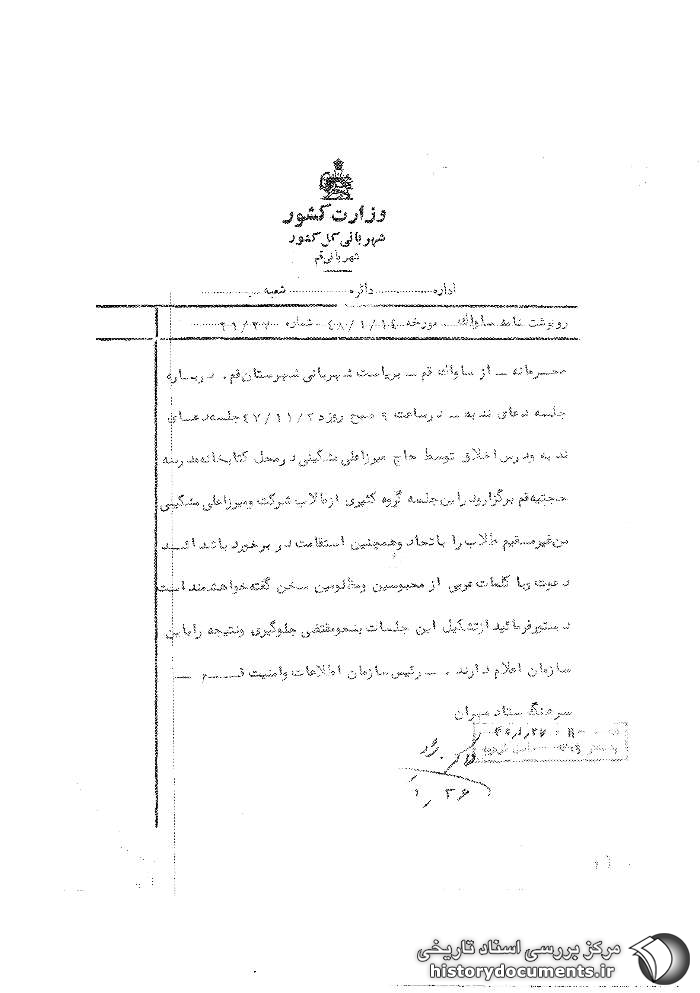 وزارت کشور
شهربانی کل کشور
شهربانی قم
اداره دائره شعبه
رونوشت نامه ساواک مورخه ۴۸/۱/۱۴ شماره ۲۱/۲۷
محرمانه - از ساواک قم - بریاست شهربانی شهرستان قم . درباره
جلسه دعای ندبه - در ساعت ۹ صبح روز ۴۷/۱۱/۲ جلسه دعای
ندبه ودرس اخلاق توسط حاج میرزاعلی مشکینی در محل کتابخانه مدرسه
حجتیه قم برگزار و در این جلسه گروه کثیری از طلاب شرکت ومیرزاعلی مشکینی
من غیر مستقیم طلاب را باتحاد وهمچنین استقامت در برخورد باشدائد
دعوت وبا کلمات عربی از محبوسین ومظلومین سخن گفته خواهشمند است
دستور فرمائید از تشکیل این جلسات بنحو مقتضی جلوگیری ونتیجه را باین
سازمان اعلام دارند . - رئیس سازمان اطلاعات وامنیت قم -
سرهنگ ستاد مهران
۱/۲۶
مرکز بررسی اسناد تاریخی
historydocuments.ir